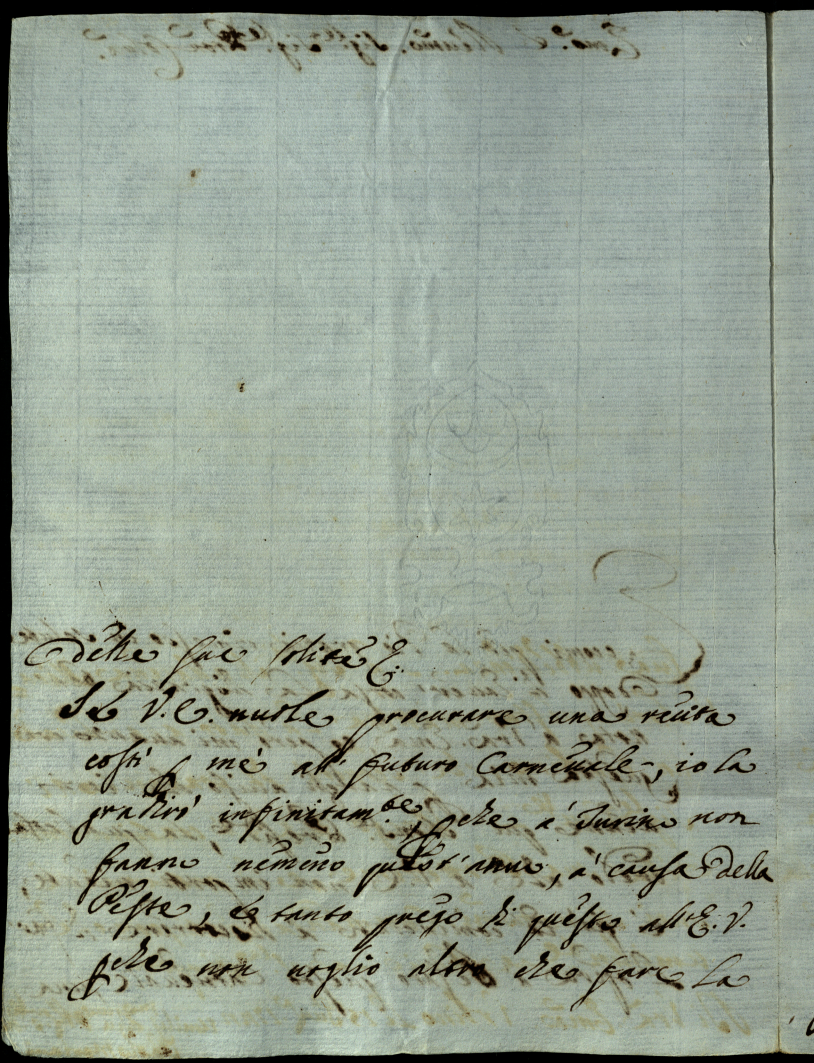 delle sue solite E.
Se V. E. vuole procurare una recita
costì p me al' futuro Carnevale, io la
gradirò infinitam.te, pche a' Turino non
fanno nemeno quest'anno, a' causa della
Peste, e tanto prego di questo all'E. V.
pche non voglio altro che fare la